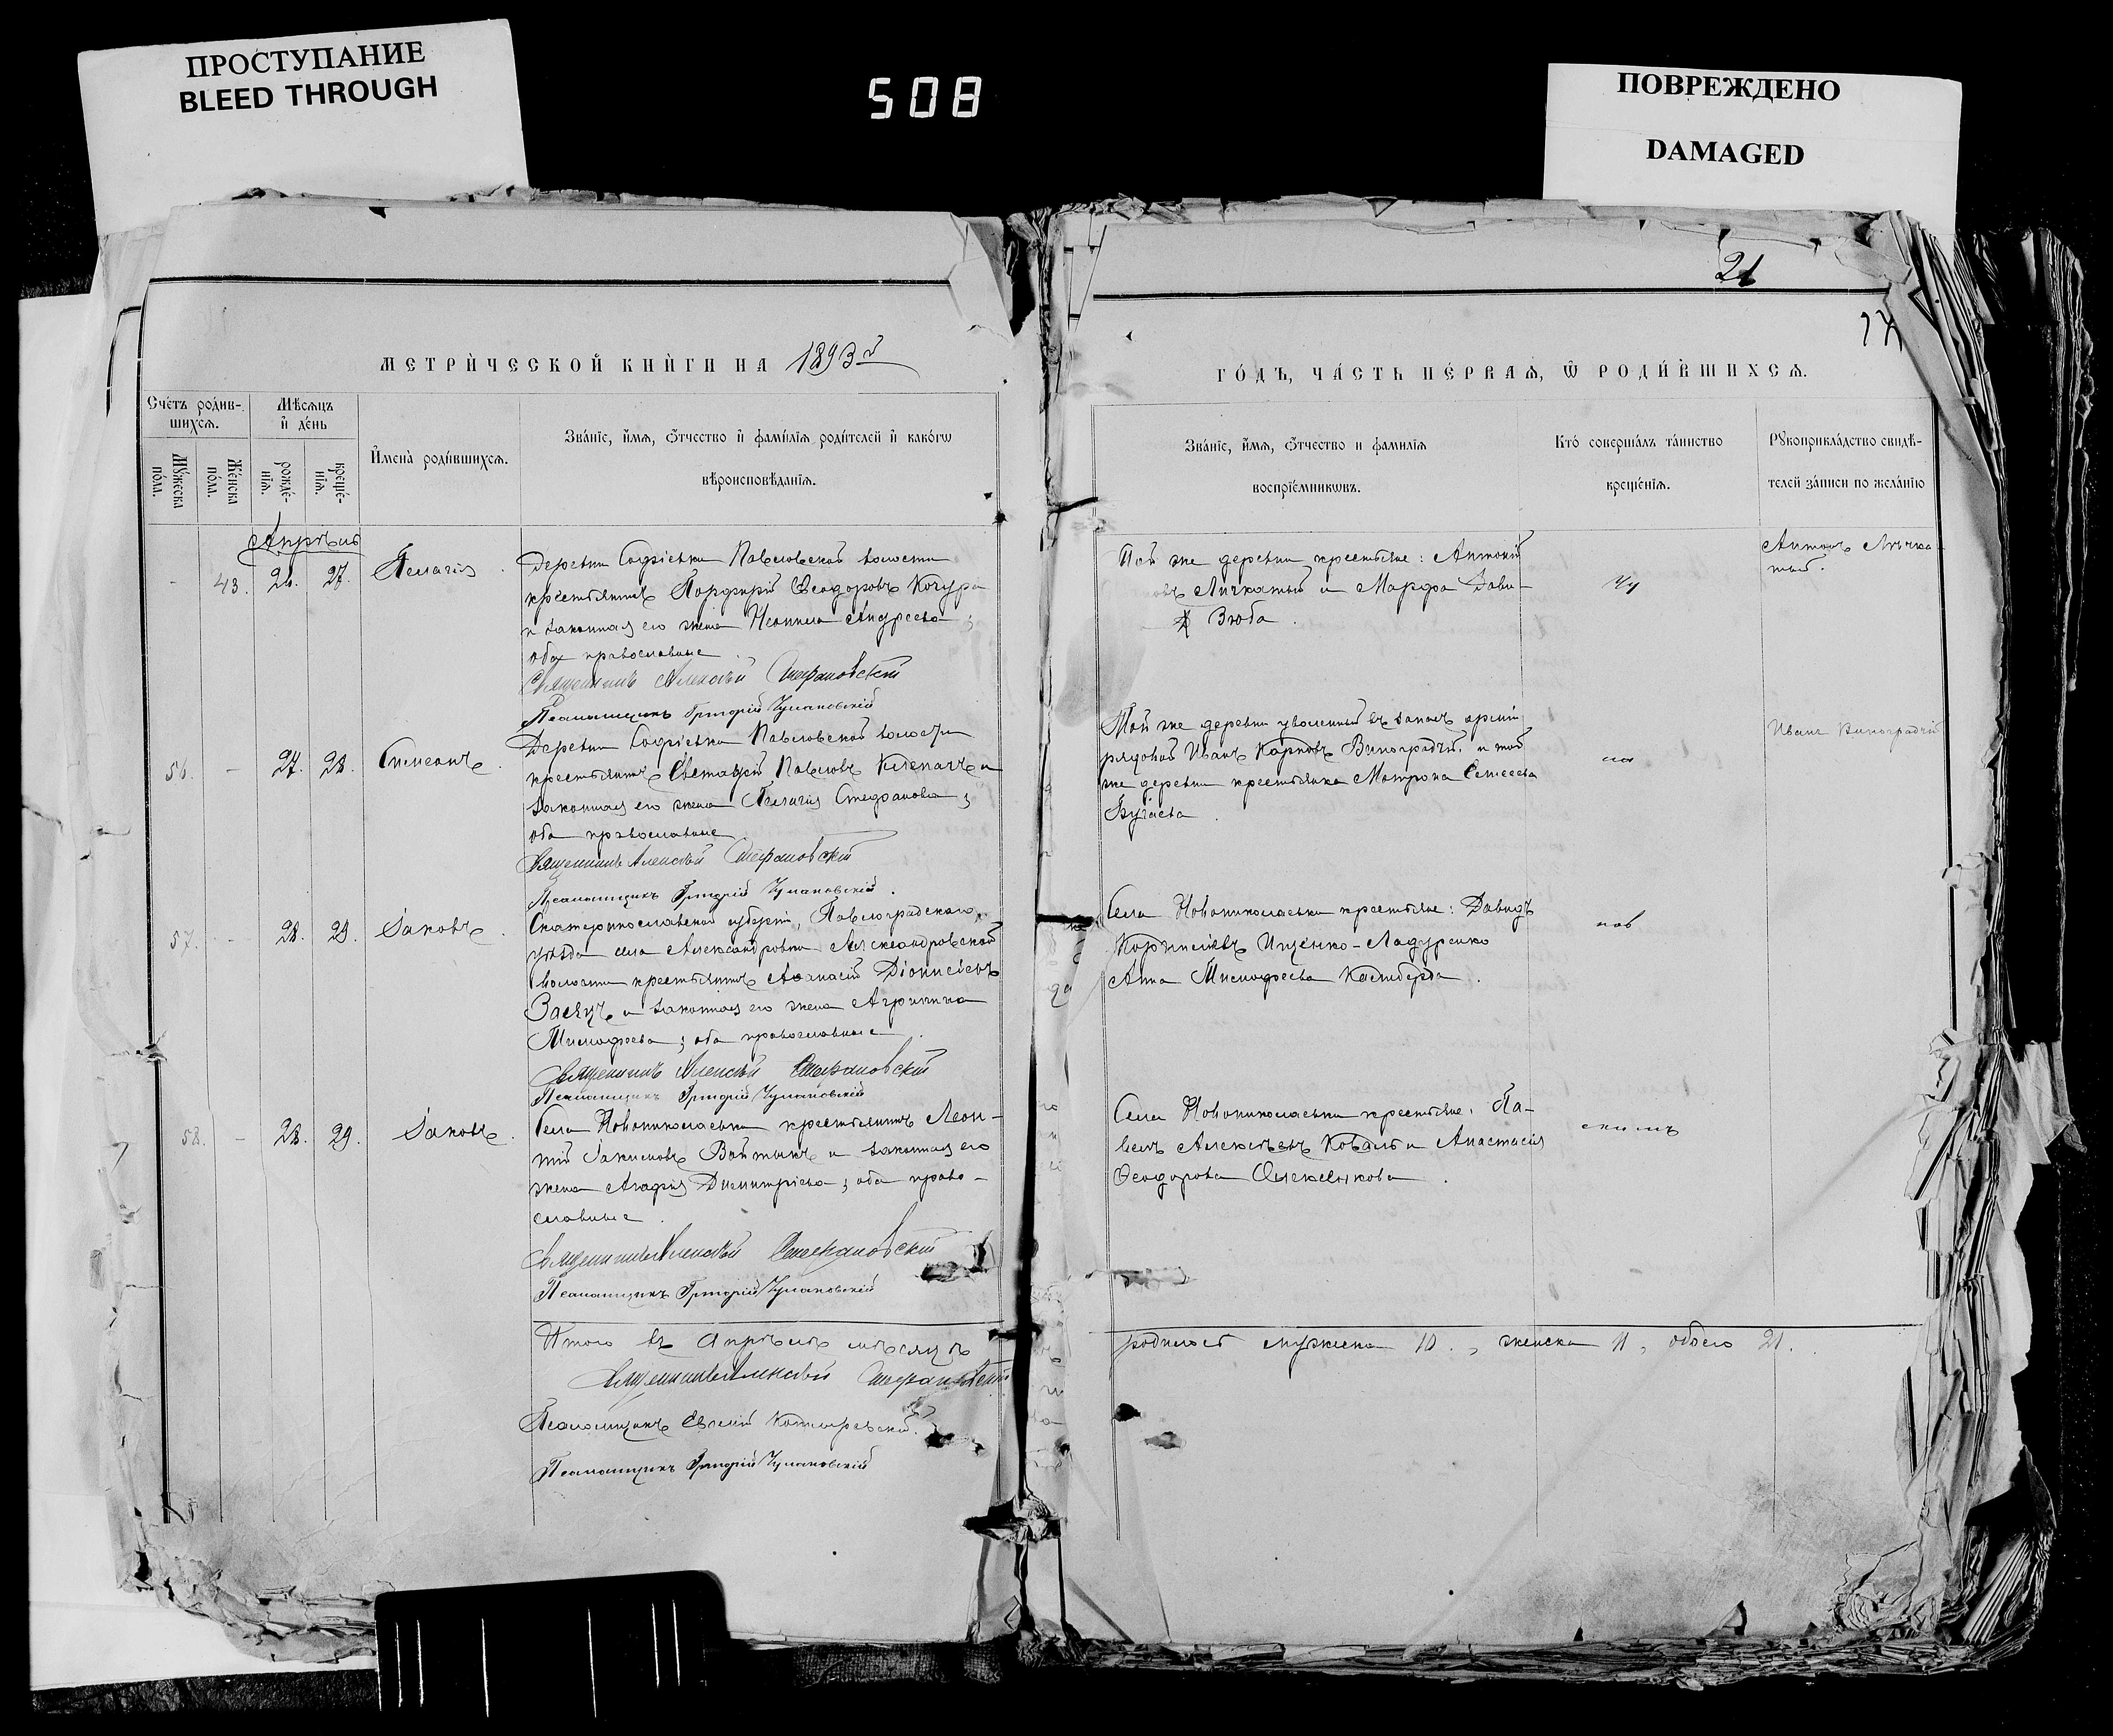 ПРОСТУПАНИЕ
BLEED THROUGH
508
ПОВРЕЖДЕНО
DAMAGED
21
МЕТРИ́ЧЕСКОЙ КНИ́ГИ НА 1893й
ГО́ДЪ, ЧА́СТЬ ПЕ́РВАѦ, Ѿ РОДИ́ВШИХСѦ.
Сче́тъ роди́в-
шихсѧ.
Мꙋ́жеска по́ла.
Же́нска по́ла.
Мѣ́сѧцъ и҆ де́нь
рожде́-нїѧ.
креще́-нїѧ.
И҆мена̀ роди́вшихсѧ.
Зва́нїе, и҆́мѧ, ѻ҆́тчество и҆ фами́лїѧ роди́телей и҆ како́гѡ
вѣроисповѣ́данїѧ.
Зва́нїе, и҆́мѧ, ѻ҆́тчество и фамилїѧ
воспрїе́мникѡвъ.
Кто́ соверша́лъ та́инство
креще́нїѧ.
Рꙋкоприкла́дство свидѣ́-
телей за́писи по жела́нїю
Апрѣль
43. 26. 27. Пелагія
Деревни Софіевки Павловской волости
крестьянинъ Порфирій Ѳеодоровъ Кочура
и законная его жена Неонила Андреева;
оба православные
Священникъ Алексѣй Стефановскій
Псаломщикъ Григорій Чумановскій
Той же деревни крестьяне: Антоній
Личкатый и Марфа Дави-
Зюба.
Антонъ
56. - 27. 28. Симеонъ.
Деревни Софіевки Павловской волости
крестьянинъ Евстафій Павловъ Клепачъ и
законная его жена Пелагія Стефанова;
оба православные
Священникъ Алексѣй Стефановскій
Псаломщикъ Григорій Чумановскій.
Той же деревни уволенный въ запасъ арміи
рядовой Иванъ Карповъ Виноградчій и той
же деревни крестьянка Матрона Семеева
Бугаева.
Иванъ Виноградчій
57. - 28. 29. Іаковъ.
Екатеринославской губерніи, Павлоградскаго
уѣзда села Александровки Александровской
волости крестьянинъ Аѳанасій Діонисіевъ
Заецъ и законная его жена Агрипина
Тимофеева; оба православные.
Священникъ Алексѣй Стефановскій
Псаломщикъ Григорій Чумановскій
Села Новониколаевки крестьяне: Давидъ
Корниліевъ Ищенко-Ладуренко
Анна Тимофеева
58. - 28. 29. Іаковъ.
Села Новониколаевки крестьянинъ Леон-
тій Іакимовъ Войтыкъ и законная его
жена Агафія Димитріева; оба право-
славные.
Священникъ Алексѣй Стефановскій
Псаломщикъ Григорій Чумановскій
Села Новониколаевки крестьяне: Па-
велъ Алексѣевъ Коваль и Анастасія
Ѳеодорова
Итого въ Апрѣлѣ мѣсяцѣ
родилось мужеска 10., женска 11, обоего 21.
Священникъ Алексѣй Стефановскій
Псаломщикъ
Псаломщикъ Григорій Чумановскій